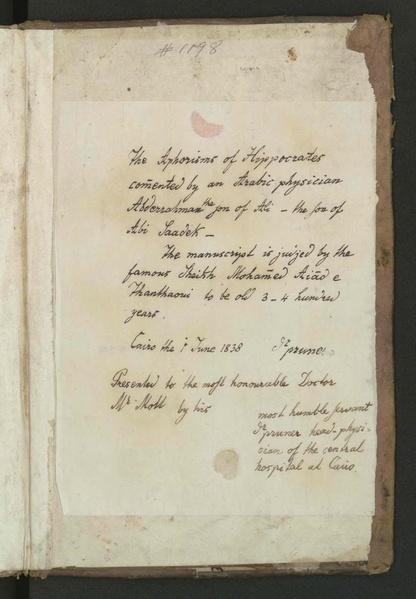 # 1198
The Aphorisms of Hippocrates
com̄ented by an Arabic physician
Abderrahman the son of Abi – the son of
Abi Saadek –
The manuscript is judjed by the
famous Sheikh Mohamed
Thanthaoui to be old 3–4 hundred
years.
Cairo the 1 June 1838 Dr pruner
Presented to the most honourable Doctor
Mr Mott by his
most humble servant
Dr pruner head-physi-
cian of the central
hospital at Cairo.